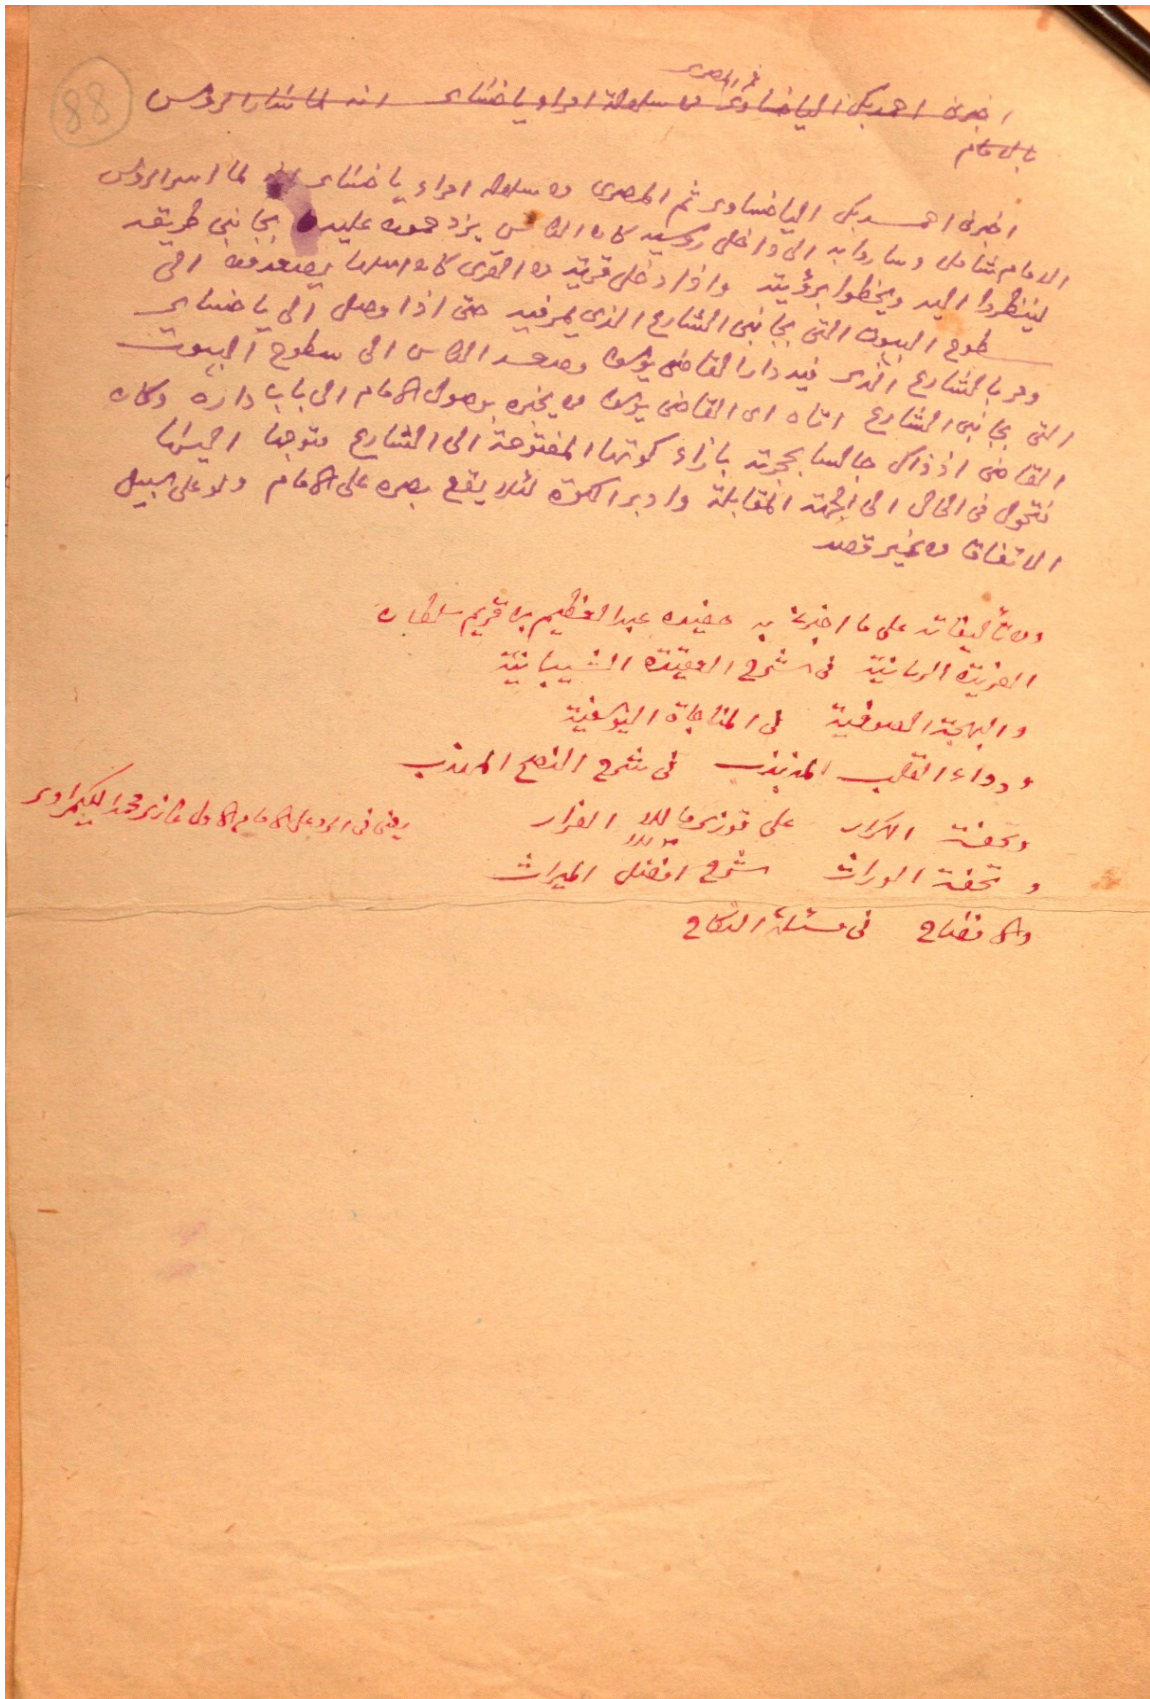 88
ثم المصرى
اخبرنى احمد بك الياخساوى من سلالة امراء ياخساى انه لما سار الروس
بالامام
اخبرنى احمد بك الياخساوى ثم المصرى من سلالة امراء ياخساى انه لما اسر الروس
الامام شامل وساروا به الى داخل روسيه كان الناس يزدحمون عليه بجانبى طريقه
لينظروا اليه ويحظوا برؤيته واذا دخل قرية من القرى كان اهلها يصعدون الى
سطوح البيوت التى بجانبى الشارع الذى يمر فيه حتى اذا وصل الى ياخساى
ومر بالشارع الذى فيه دار القاضى يوسف وصعد الناس الى سطوح البيوت
التى بجانبى الشارع اتاه اى القاضى يوسف من يخبره بوصول الامام الى باب داره وكان
القاضى اذ ذاك جالسا بحجرته بازاء كوتها المفتوحة الى الشارع متوجها اليها
فتحول فى الحال الى الجهة المقابلة وادبر الكوة لئلا يقع بصره على الامام ولو على سبيل
الاتفاق من غير قصد
ومن تأليفاته على ما اخبرنى به حفيده عبد العظيم بن قريم سلطان
الفريدة الربانية فى شرح العقيدة الشيبانية
والبهجة الصوفية فى المناجاة اليوسفية
ودواء القلب المذبذب فى شرح النصح المهذب
وتحفة الكرار على الفرار يعنى فى الرد على الامام الاول غازى محمد الكمراوى
وتحفة الوراث شرح افضل الميراث
والافضاح فى مسئلة النكاح